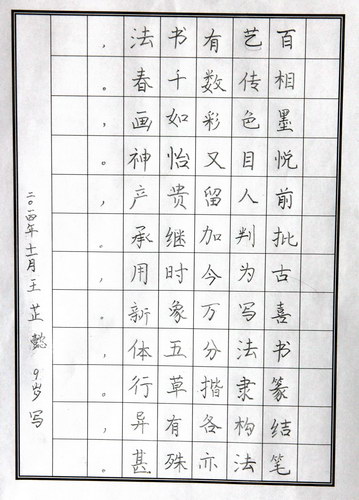 百艺有书法，
相传数千春。
墨色彩如画，
悦目又怡神。
前人留贵产，
批判加继承。
古为今时用，
喜写万象新。
书法分五体，
篆隶楷草行。
结构各有异，
笔法亦殊甚。
二〇一四年十一月王芷懿9岁写